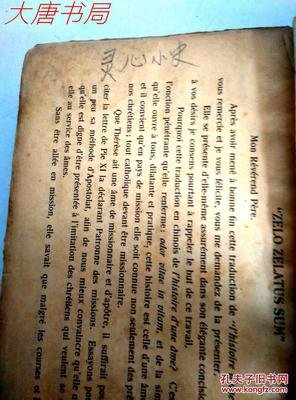 大唐书局
灵心小史
"ZELO ZELATUS SUM"
Mon Révérend Père,
Après avoir mené à bonne fin cette traduction de «l'Histoire
vous remercie et je vous félicite, vous me demandez de la présenter
Elle se présente d'elle-même assurément dans son élégante concisi
à vos désirs je consens pourtant à rappeler le but de ce travail.
Pourquoi cette traduction en chinois de l'histoire d'une âme?
l'onction pénétrante qu'elle renferme: odor vitae in vitam, et de la
qu'elle ouvre à tous, dilatante et pratique, cette histoire est celle d'une
et il convient qu'en pays de mission elle soit connue non seulement des
nos chrétiens; tout catholique devant être missionnaire.
Que Thérèse ait une âme de missionnaire et d'apôtre, il suffirait
citer la lettre de Pie XI la déclarant Patronne des missions. Essayons
un peu sa méthode d'Apostolat, afin de nous mieux convaincre qu'elle
qu'elle est digne d'être présentée à l'imitation des chrétiens qui veulent se
elle au service des âmes.
Sans être allée en mission, elle savait que malgré les courses et
孔夫子旧书网